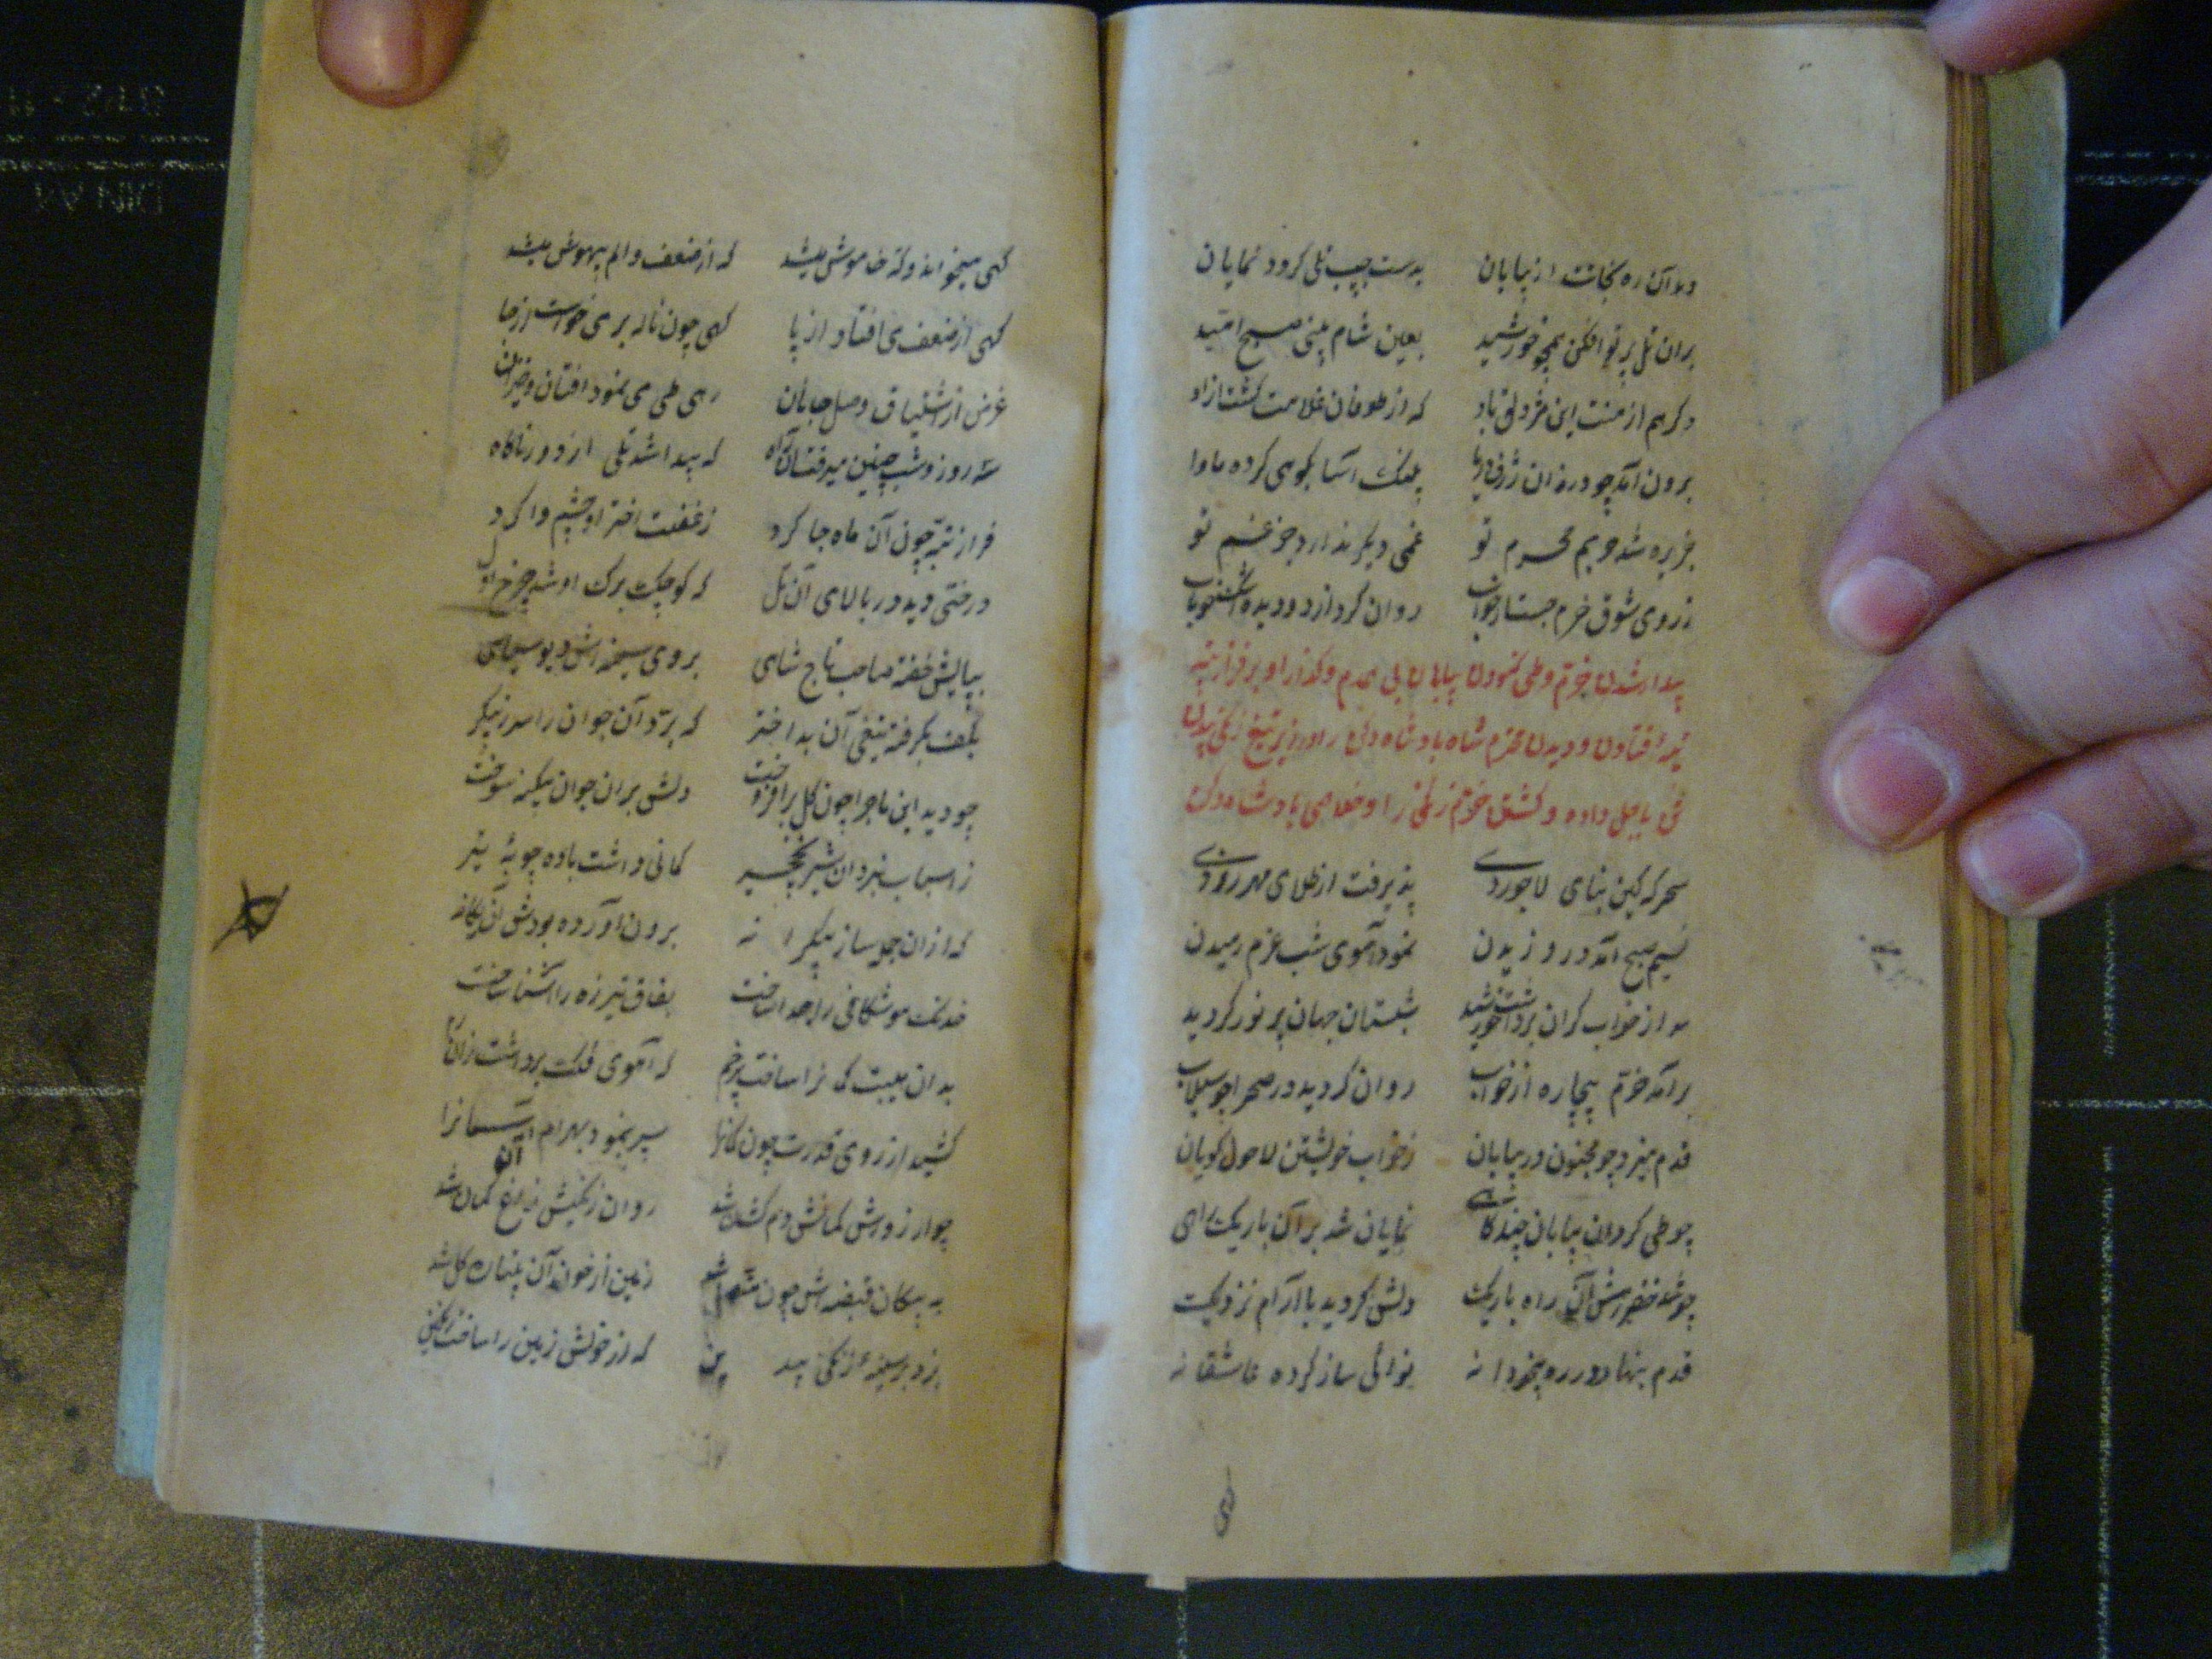 در آن ره نجاتت از بیابان بدست چپ تلی گردد نمایان
بران تل پرتو افکن همچو خورشید بعین شام بینی صبح امید
دگر هم از منت این مژدگی باد که از طوفان غلامت گشت ازاد
برون آمد چو در زان ژرف دریا پلنگ آسا بکوهی کرده ماوا
جزیره شد چو بم محرم تو غمی دیگر ندارد جز غم تو
ز روی شوق خرم جست از خواب روان کرد از دو دیده اشک خوناب
بیدار شدن خرم و طی نمودن بیابان بی همدم و گذار او بر فراز تپه
افتادن و دیدن خرم شاه بادشاه دکن را در زیر تیغ زنگی
تن باجل داده و کشتن خرم زنگی را و خلاصی پادشاه دکن
سحر که کین بنای لاجوردی پذیرفت از طلای مهر زردی
نسیم صبح آمد در وزیدن نمود آهوی شب عزم رمیدن
سر از خواب گران برداشت خورشید شبستان جهان پر نور گردید
برآمد خرم بیچاره از خواب روان گردید در صحرا چو سیلاب
قدم میزد چو مجنون در بیابان ز خواب خویشتن لاحول گویان
چو طی کرد آن بیابان چند گاهی نمایان شد بر آن باریک راهی
چو شد خضر رهش آن راه باریک دلش گردید با آرام نزدیک
قدم بنهاد در ره بیخودانه نوائی ساز کرده عاشقانه
گهی میخواند و گه خاموش میشد که از ضعف و الم بیهوش میشد
گهی از ضعف می افتاد از پا گهی چون ناله بر می خواست از جا
غرض از اشتیاق وصل جانان رهی طی می نمود افتان و خیزان
سه روز و شب چنین میرفت آن ماه که پیدا شد تلی از دور ناگاه
فراز تپه چون آن ماه جا کرد ز غفلت اختر او چشم وا کرد
درختی دید در بالای آن تل که کوچک برگ او شد چرخ اول
بپایش خفته صاحب تاج شاهی بروی سینه اش دیو سیاهی
بکف بگرفته تیغی آن بد اختر که برد آن جوان را سر ز پیکر
چو دید این ماجرا چون گل برافروخت دلش بر آن جوان پیکر بسوخت
ز اسباب نبرد آن شیر نخچیر کمانی داشت با ده چوبه تیر
که از آن چوساز پیکرانه برون آورده بودش آن یگانه
خدنگ موشکافی را جدا ساخت بفاق تیر زه را آشنا ساخت
بدان هیبت کمانرا ساخت پر خم که آهوی فلک برداشت زان رم
کشید از روی قدرت چون کمانرا سپر بنمود بهرام آسمانرا
چو از زورش کمانش دم کشان شد روان زنگیش زاغ کمان شد
به پیکان قبضه اش چون متصل شد زمین از خون آن گل شد
بزد بر سینه زنگی که از خونش زمین را ساخت رنگین